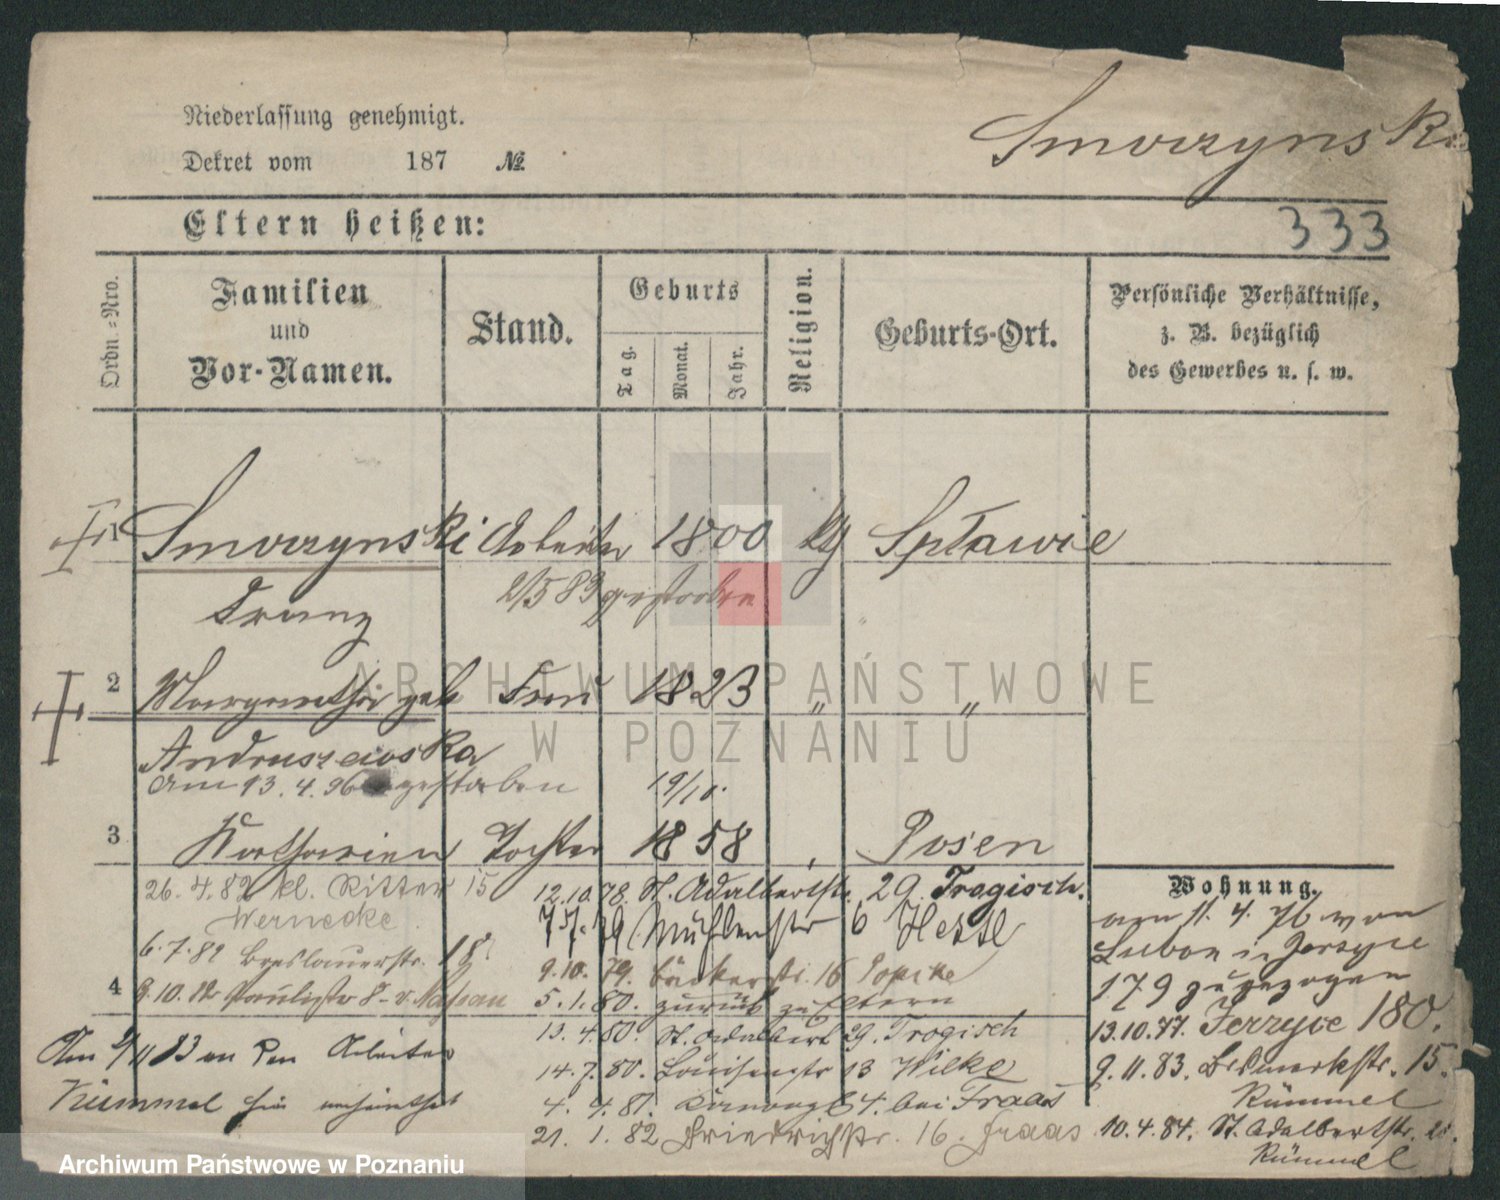 Niederlassung genehmigt.
Dekret vom 187 №
Smorzynski
Eltern heißen:
333
Ordn.=Nro.
Familien
und
Vor-Namen.
Stand.
Geburts
Tag.
Monat.
Jahr.
Religion.
Geburts-Ort.
Persönliche Verhältnisse,
z. B. bezüglich
des Gewerbes u. s. w.
1 Smorzynski Arbeiter 1800 kg Spławie
Franz
2/5 83 gestorben
2 Margaretha geb Frau 1823 " "
Andruszewska
am 13. 4. 96 gestorben
19/10.
3 Katharina Tochter 1858 Posen
Wohnung.
26. 4. 82 kl. Ritter 15
Wernecke
6. 7. 82 Breslauerstr. 18
4 9. 10. 82 Paulistr 8 - v. Nassau
Am 9/11 83 an den Arbeiter
Kümmel hier verheirathet
12. 10. 78. St. Adalbertstr. 29. Trogisch.
7. 7. 79 Mühlenstr 6
9. 10. 79. Bäckerstr. 16
5. 1. 80. zurück zu Eltern
13. 4. 80. St. Adalbert 29. Trogisch
14. 7. 80. Louisenstr 13 Wilke
4. 4. 81. 4. bei Fraas
21. 1. 82 Friedrichstr. 16. Fraas
am 11. 4. 76 von
Lubon in Jerzyce
179 zugezogen
13. 10. 77. Jerzyce 180.
9. 11. 83. 15.
Kümmel
10. 4. 84. St. Adalbertstr.
Kümmel
ARCHIWUM PAŃSTWOWE
W POZNANIU
Archiwum Państwowe w Poznaniu